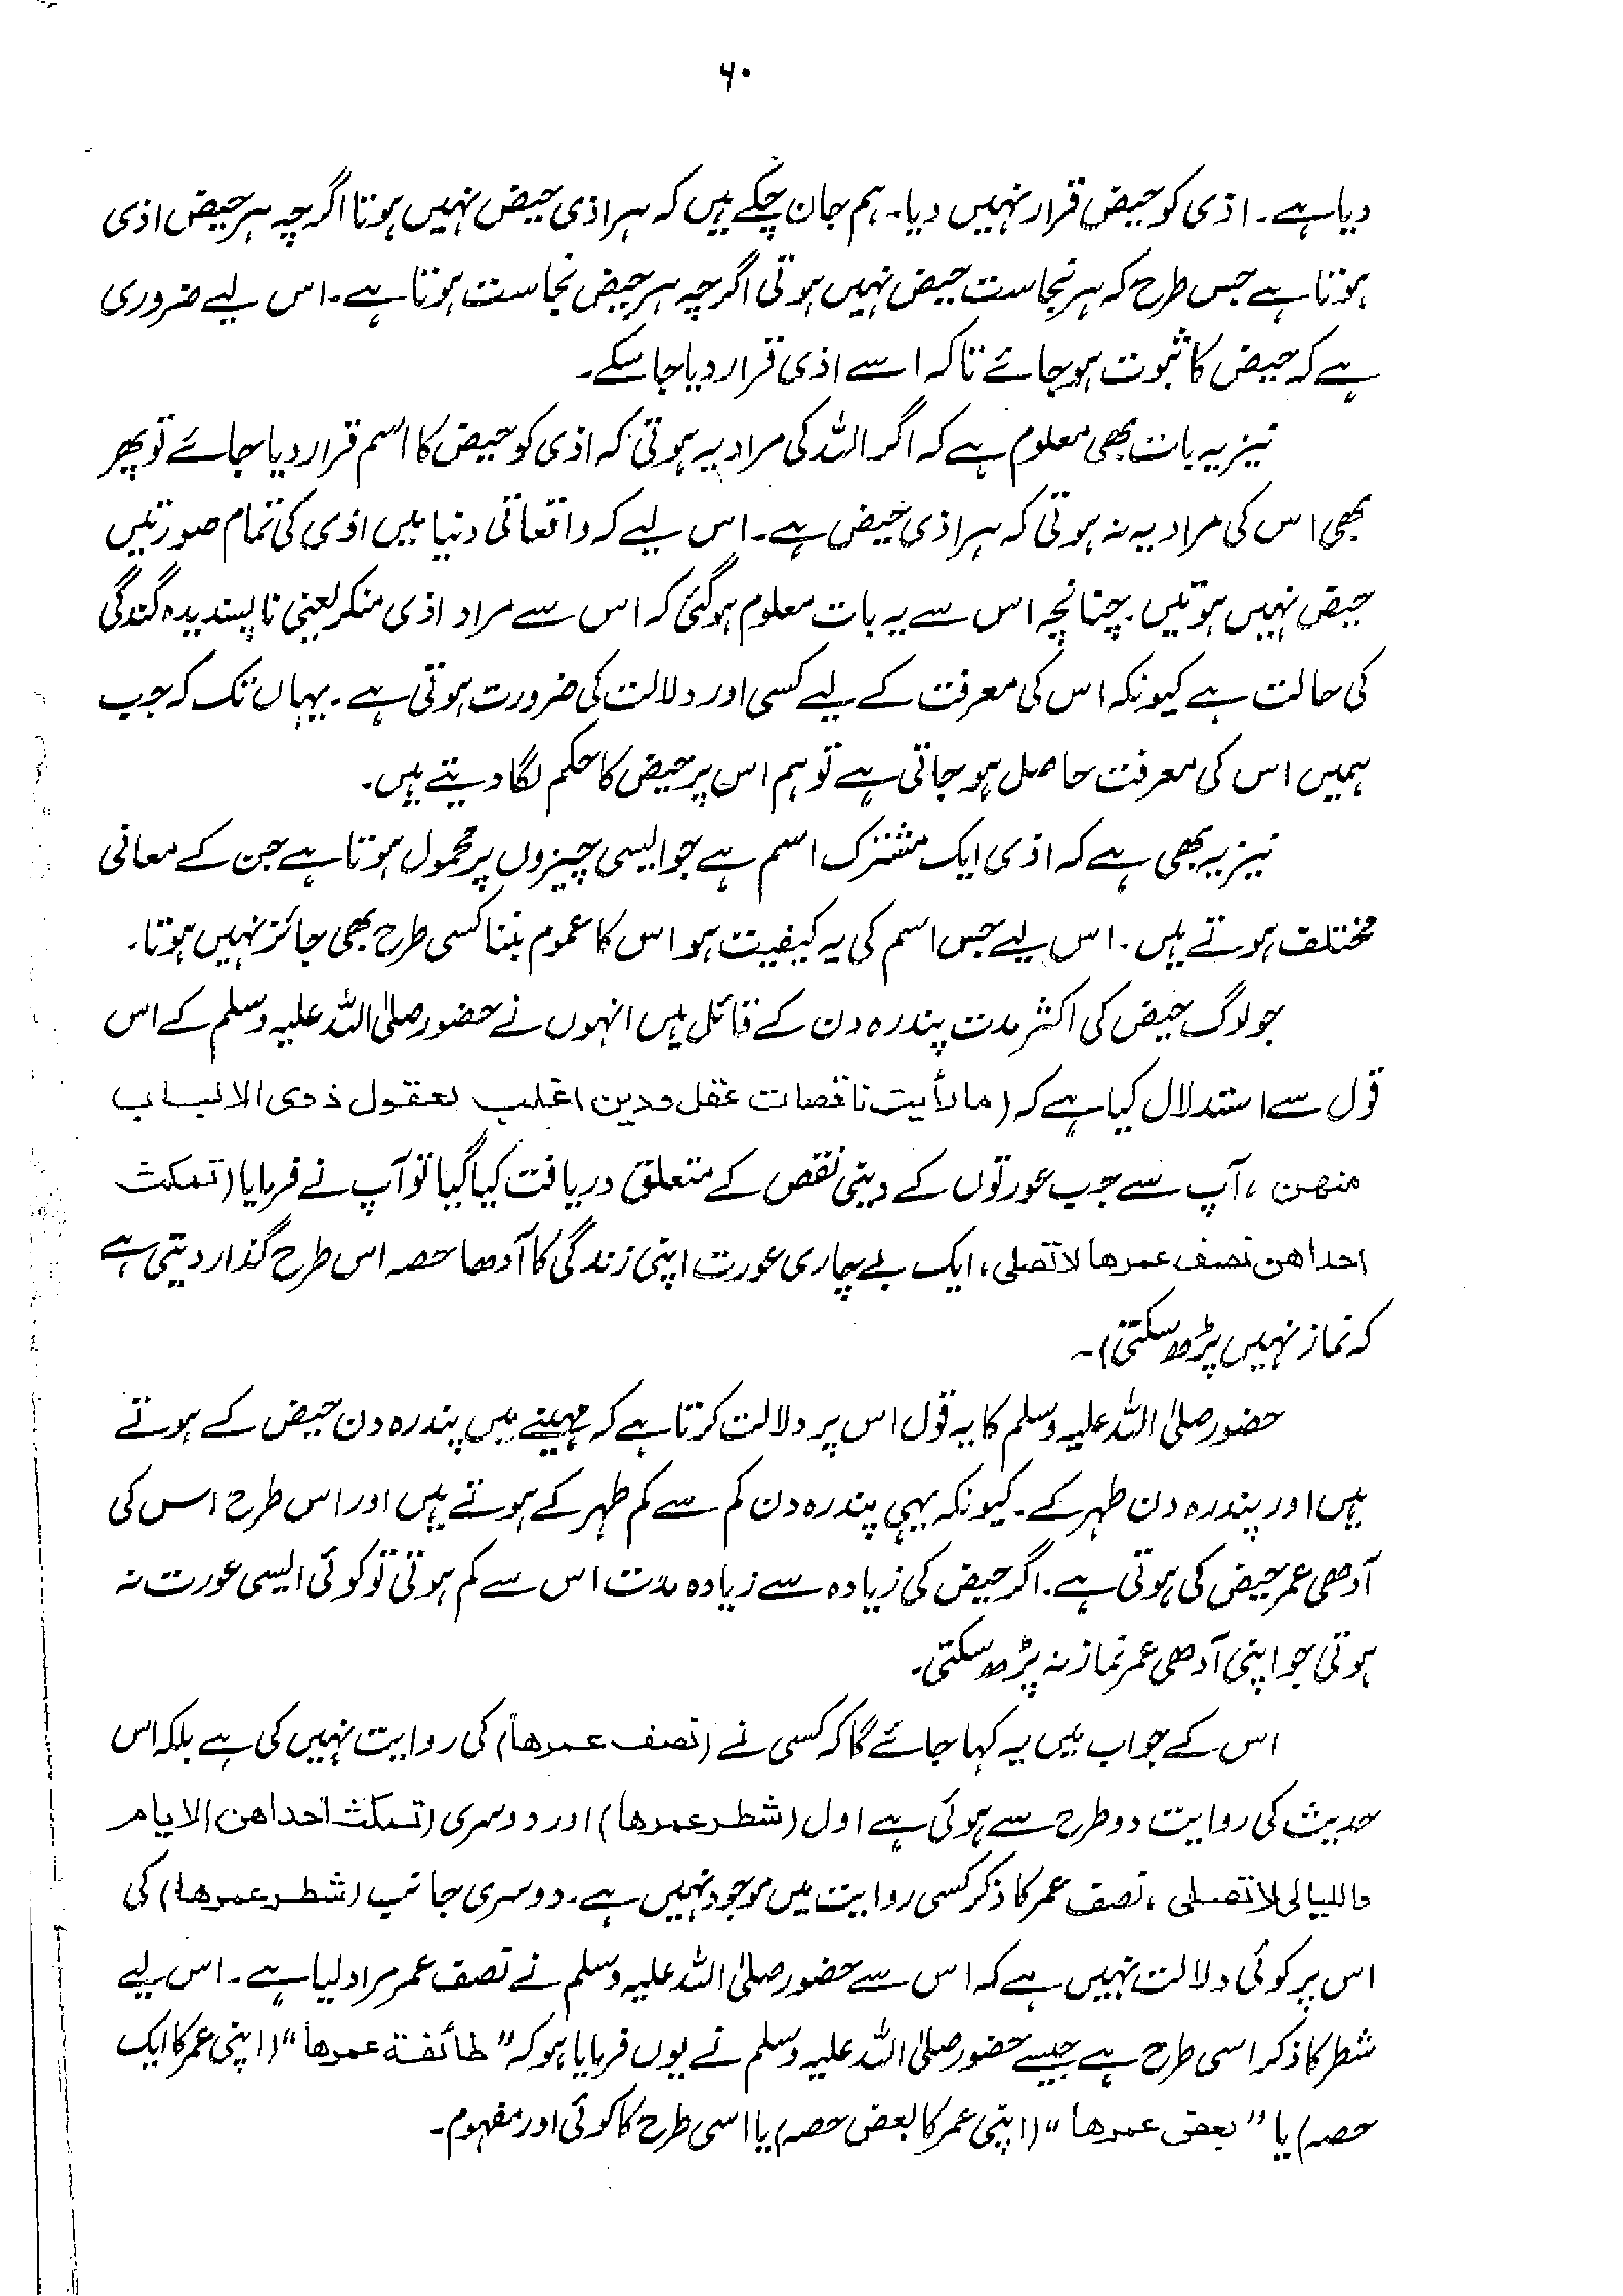 ۶۰
دیا ہے۔ اذی کو حیض قرار نہیں دیا۔ ہم جان چکے ہیں کہ ہر اذی حیض نہیں ہوتا اگرچہ ہر حیض اذی
ہوتا ہے جس طرح کہ ہر نجاست حیض نہیں ہوتی اگرچہ ہر حیض نجاست ہوتا ہے۔ اس لیے ضروری
ہے کہ حیض کا ثبوت ہو جائے تاکہ اسے اذی قرار دیا جا سکے۔
نیز یہ بات بھی معلوم ہے کہ اگر اللہ کی مراد یہ ہوتی کہ اذی کو حیض کا اسم قرار دیا جائے تو پھر
بھی اس کی مراد یہ نہ ہوتی کہ ہر اذی حیض ہے۔ اس لیے کہ واقعاتی دنیا میں اذی کی تمام صورتیں
حیض نہیں ہوتیں۔ چنانچہ اس سے یہ بات معلوم ہو گئی کہ اس سے مراد اذی منکر یعنی ناپسندیدہ گندگی
کی حالت ہے کیونکہ اس کی معرفت کے لیے کسی اور دلالت کی ضرورت ہوتی ہے۔ یہاں تک کہ جب
ہمیں اس کی معرفت حاصل ہو جاتی ہے تو ہم اس پر حیض کا حکم لگا دیتے ہیں۔
نیز یہ بھی ہے کہ اذی ایک مشترک اسم ہے جو ایسی چیزوں پر محمول ہوتا ہے جن کے معانی
مختلف ہوتے ہیں۔ اس لیے جس اسم کی یہ کیفیت ہو اس کا عموم بننا کسی طرح بھی جائز نہیں ہوتا۔
جو لوگ حیض کی اکثر مدت پندرہ دن کے قائل ہیں انہوں نے حضور صلی اللہ علیہ وسلم کے اس
قول سے استدلال کیا ہے کہ (ما رأیت ناقصات عقل ودین اغلب لعقول ذوی الالباب
منھن، آپ سے جب عورتوں کے دینی نقص کے متعلق دریافت کیا گیا تو آپ نے فرمایا (تمکث
احداھن نصف عمرھا لا تصلی، ایک بے چاری عورت اپنی زندگی کا آدھا حصہ اس طرح گذار دیتی ہے
کہ نماز نہیں پڑھ سکتی)۔
حضور صلی اللہ علیہ وسلم کا یہ قول اس پر دلالت کرتا ہے کہ مہینے میں پندرہ دن حیض کے ہوتے
ہیں اور پندرہ دن طہر کے۔ کیونکہ یہی پندرہ دن کم سے کم طہر کے ہوتے ہیں اور اس طرح اس کی
آدھی عمر حیض کی ہوتی ہے۔ اگر حیض کی زیادہ سے زیادہ مدت اس سے کم ہوتی تو کوئی ایسی عورت نہ
ہوتی جو اپنی آدھی عمر نماز نہ پڑھ سکتی۔
اس کے جواب میں یہ کہا جائے گا کہ کسی نے (نصف عمرھا) کی روایت نہیں کی ہے بلکہ اس
حدیث کی روایت دو طرح سے ہوئی ہے اول (شطر عمرھا) اور دوسری (تمکث احداھن الایام
واللیالی لا تصلی، نصف عمر کا ذکر کسی روایت میں موجود نہیں ہے۔ دوسری جانب (شطر عمرھا) کی
اس پر کوئی دلالت نہیں ہے کہ اس سے حضور صلی اللہ علیہ وسلم نے نصف عمر مراد لیا ہے۔ اس لیے
شطر کا ذکر اسی طرح ہے جیسے حضور صلی اللہ علیہ وسلم نے یوں فرمایا ہو کہ "طائفة عمرھا" (اپنی عمر کا ایک
حصہ) یا "بعض عمرھا" (اپنی عمر کا بعض حصہ) یا اسی طرح کا کوئی اور مفہوم۔